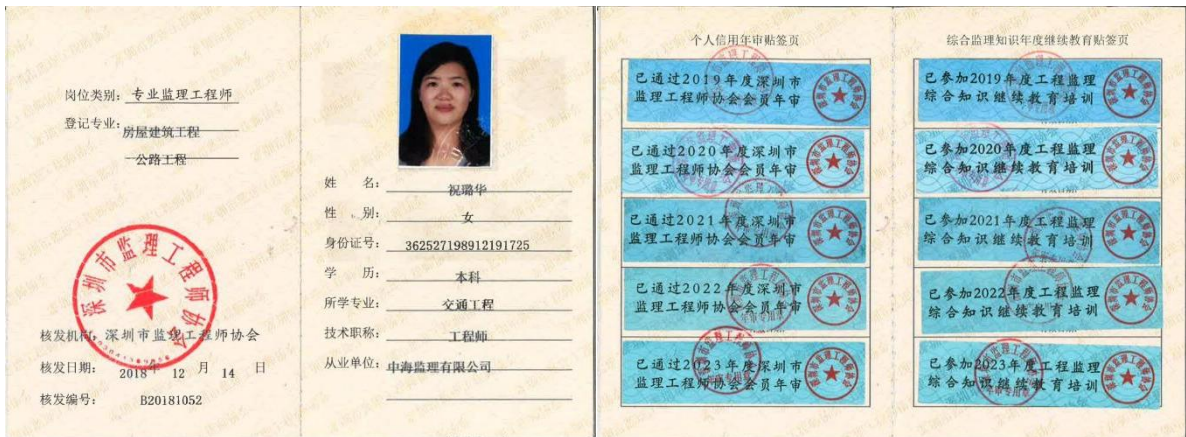 岗位类别：专业监理工程师
登记专业：房屋建筑工程
公路工程
深圳市监理工程师协会
核发机构：深圳市监理工程师协会
核发日期：2018年 12 月 14 日
核发编号： B20181052
姓 名：祝璐华
性 别：女
身份证号：362527198912191725
学 历：本科
所学专业：交通工程
技术职称：工程师
从业单位：中海监理有限公司
个人信用年审贴签页
已通过2019年度深圳市
监理工程师协会会员年审
已通过2020年度深圳市
监理工程师协会会员年审
已通过2021年度深圳市
监理工程师协会会员年审
已通过2022年度深圳市
监理工程师协会会员年审
已通过2023年度深圳市
监理工程师协会会员年审
综合监理知识年度继续教育贴签页
已参加2019年度工程监理
综合知识继续教育培训
已参加2020年度工程监理
综合知识继续教育培训
已参加2021年度工程监理
综合知识继续教育培训
已参加2022年度工程监理
综合知识继续教育培训
已参加2023年度工程监理
综合知识继续教育培训